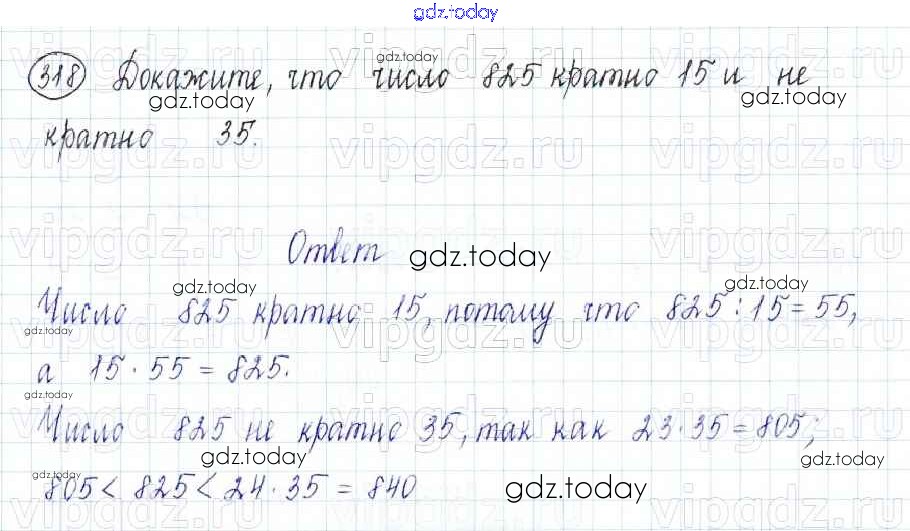 gdz.today
318 Докажите, что число 825 кратно 15 и не
gdz.today
gdz.today gdz.today
кратно 35.
vipgdz.ru vipgdz.ru vipgdz.ru
Ответ gdz.today
vipgdz.ru vipgdz.ru vipgdz.ru
gdz.today gdz.today
Число 825 кратно 15, потому что 825 : 15 = 55,
gdz.today
а 15 · 55 = 825.
gdz.today
Число 825 не кратно 35, так как 23 · 35 = 805;
gdz.today gdz.today
gdz.today
805 < 825 < 24 · 35 = 840 gdz.today